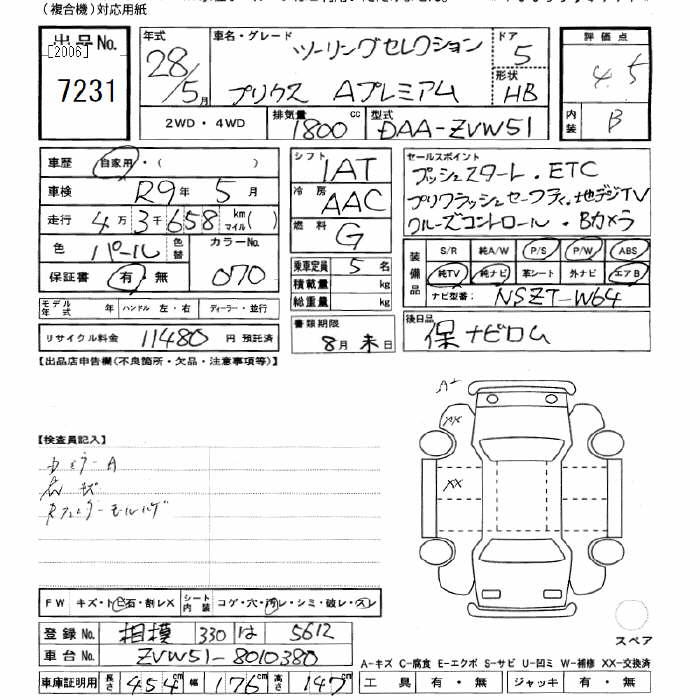 (複合機)対応用紙
出品No.
[2006]
7231
年式 28/5月
車名・グレード
ツーリングセレクション
プリウス Aプレミアム
ドア 5
形状 HB
評価点
4.5
内装 B
2WD・4WD
排気量 1800 cc
型式 DAA-ZVW51
車歴 自家用・( )
車検 R9年 5月
走行 4万3千658 km マイル( )
色 パール 色替 カラーNo. 070
保証書 有・無
モデル年式 年 ハンドル 左・右 ディーラー・並行
リサイクル料金 11480 円 預託済
シフト IAT
冷房 AAC
燃料 G
乗車定員 5名
積載量 kg
総重量 kg
書類期限
8月 末日
セールスポイント
プッシュスタート.ETC
プリクラッシュセーフティ.地デジTV
クルーズコントロール.Bカメラ
装備品
S/R 純A/W P/S P/W ABS
純TV 純ナビ 革シート 外ナビ エアB
ナビ型番: NSZT-W64
後日品
保 ナビロム
【出品店申告欄(不良箇所・欠品・注意事項等)】
【検査員記入】
A
Rフェンダーモール
A
XX
XX
FW キズ・トビ石・割レX シート内装 コゲ・穴・汚レ・シミ・破レ・スレ
登録No. 相模 330 は 5612
車台No. ZVW51-8010380
車庫証明用 長さ 454cm 幅 176cm 高さ 147cm
スペア
A-キズ C-腐食 E-エクボ S-サビ U-凹ミ W-補修 XX-交換済
工具 有・無 ジャッキ 有・無